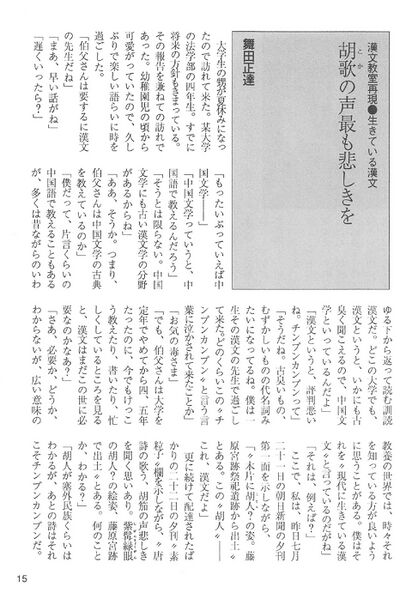 漢文教室再現●生きている漢文
胡歌の声最も悲しきを
とか
舞田正達
大学生の甥が夏休みになっ
たので訪れて来た。某大学
の法学部の四年生。すでに
将来の方針もきまっている。
その報告を兼ねての訪れで
あった。幼稚園児の頃から
可愛がっていたので、久し
ぶりで楽しい語らいに時を
過ごした。
「伯父さんは要するに漢文
の先生だね」
「まあ、早い話がね」
「遅くいったら？」
「もったいぶっていえば中
国文学――」
「中国文学っていうと、中
国語で教えるんだろう」
「そうとは限らない。中国
文学にも古い漢文学の分野
があるからね」
「ああ、そうか。つまり、
伯父さんは中国文学の古典
を教えているのか」
「僕だって、片言くらいの
中国語で教えることもある
が、多くは昔ながらのいわ
ゆる下から返って読む訓読
漢文だ。どこの大学でも、
漢文というと、いかにも古
臭く聞こえるので、中国文
学といっているんだよ」
「漢文というと、評判悪い
ね。チンプンカンプンって」
「そうだね。古臭いもの、
むずかしいものの代名詞み
たいになってるね。僕は一
生その漢文の先生で過ごし
て来た。どのくらいこの〝チ
ンプンカンプン〟と言う言
葉に泣かされて来たことか」
「お気の毒さま」
「でも、伯父さんは大学を
定年でやめてから四、五年
たったのに、今でもけっこ
う教えたり、書いたり、忙
しくしているところを見る
と、漢文はまだこの世に必
要なのかなあ？」
「さあ、必要か、どうか、
わからないが、広い意味の
教養の世界では、時々それ
を知っている方が良いよう
に思うことがある。僕はそ
れを〝現代に生きている漢
文〟と言っているのだがね」
「それは、例えば？」
ここで、私は、昨日七月
二十一日の朝日新聞の夕刊
第一面を示しながら、
「〝木片に胡人？の姿、藤
原宮跡祭祀遺跡から出土〟
とある。この〝胡人〟――
これ、漢文だよ」
更に続けて配達されたば
かりの二十二日の夕刊〝素
粒子〟欄を示しながら、〝唐
詩の歌う、胡笳の声悲しき
を聞く思いあり。紫髯緑眼
の胡人？の絵姿、藤原宮跡
で出土〟とある。何のこと
か、わかる？」
「胡人が塞外民族くらいは
わかるが、あとの詩はそれ
こそチンプンカンプンだ。
15